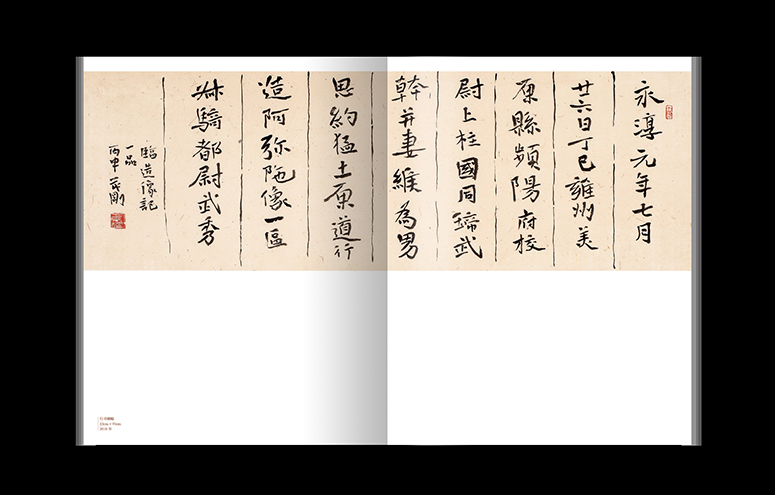 永淳元年七月
廿六日丁巳雍州美
原縣頻陽府校
尉上柱國同蹄武
幹并妻緱為男
思約猛士原道行
造阿弥陁像一區
驕都尉武秀
臨造像記
一品
丙申